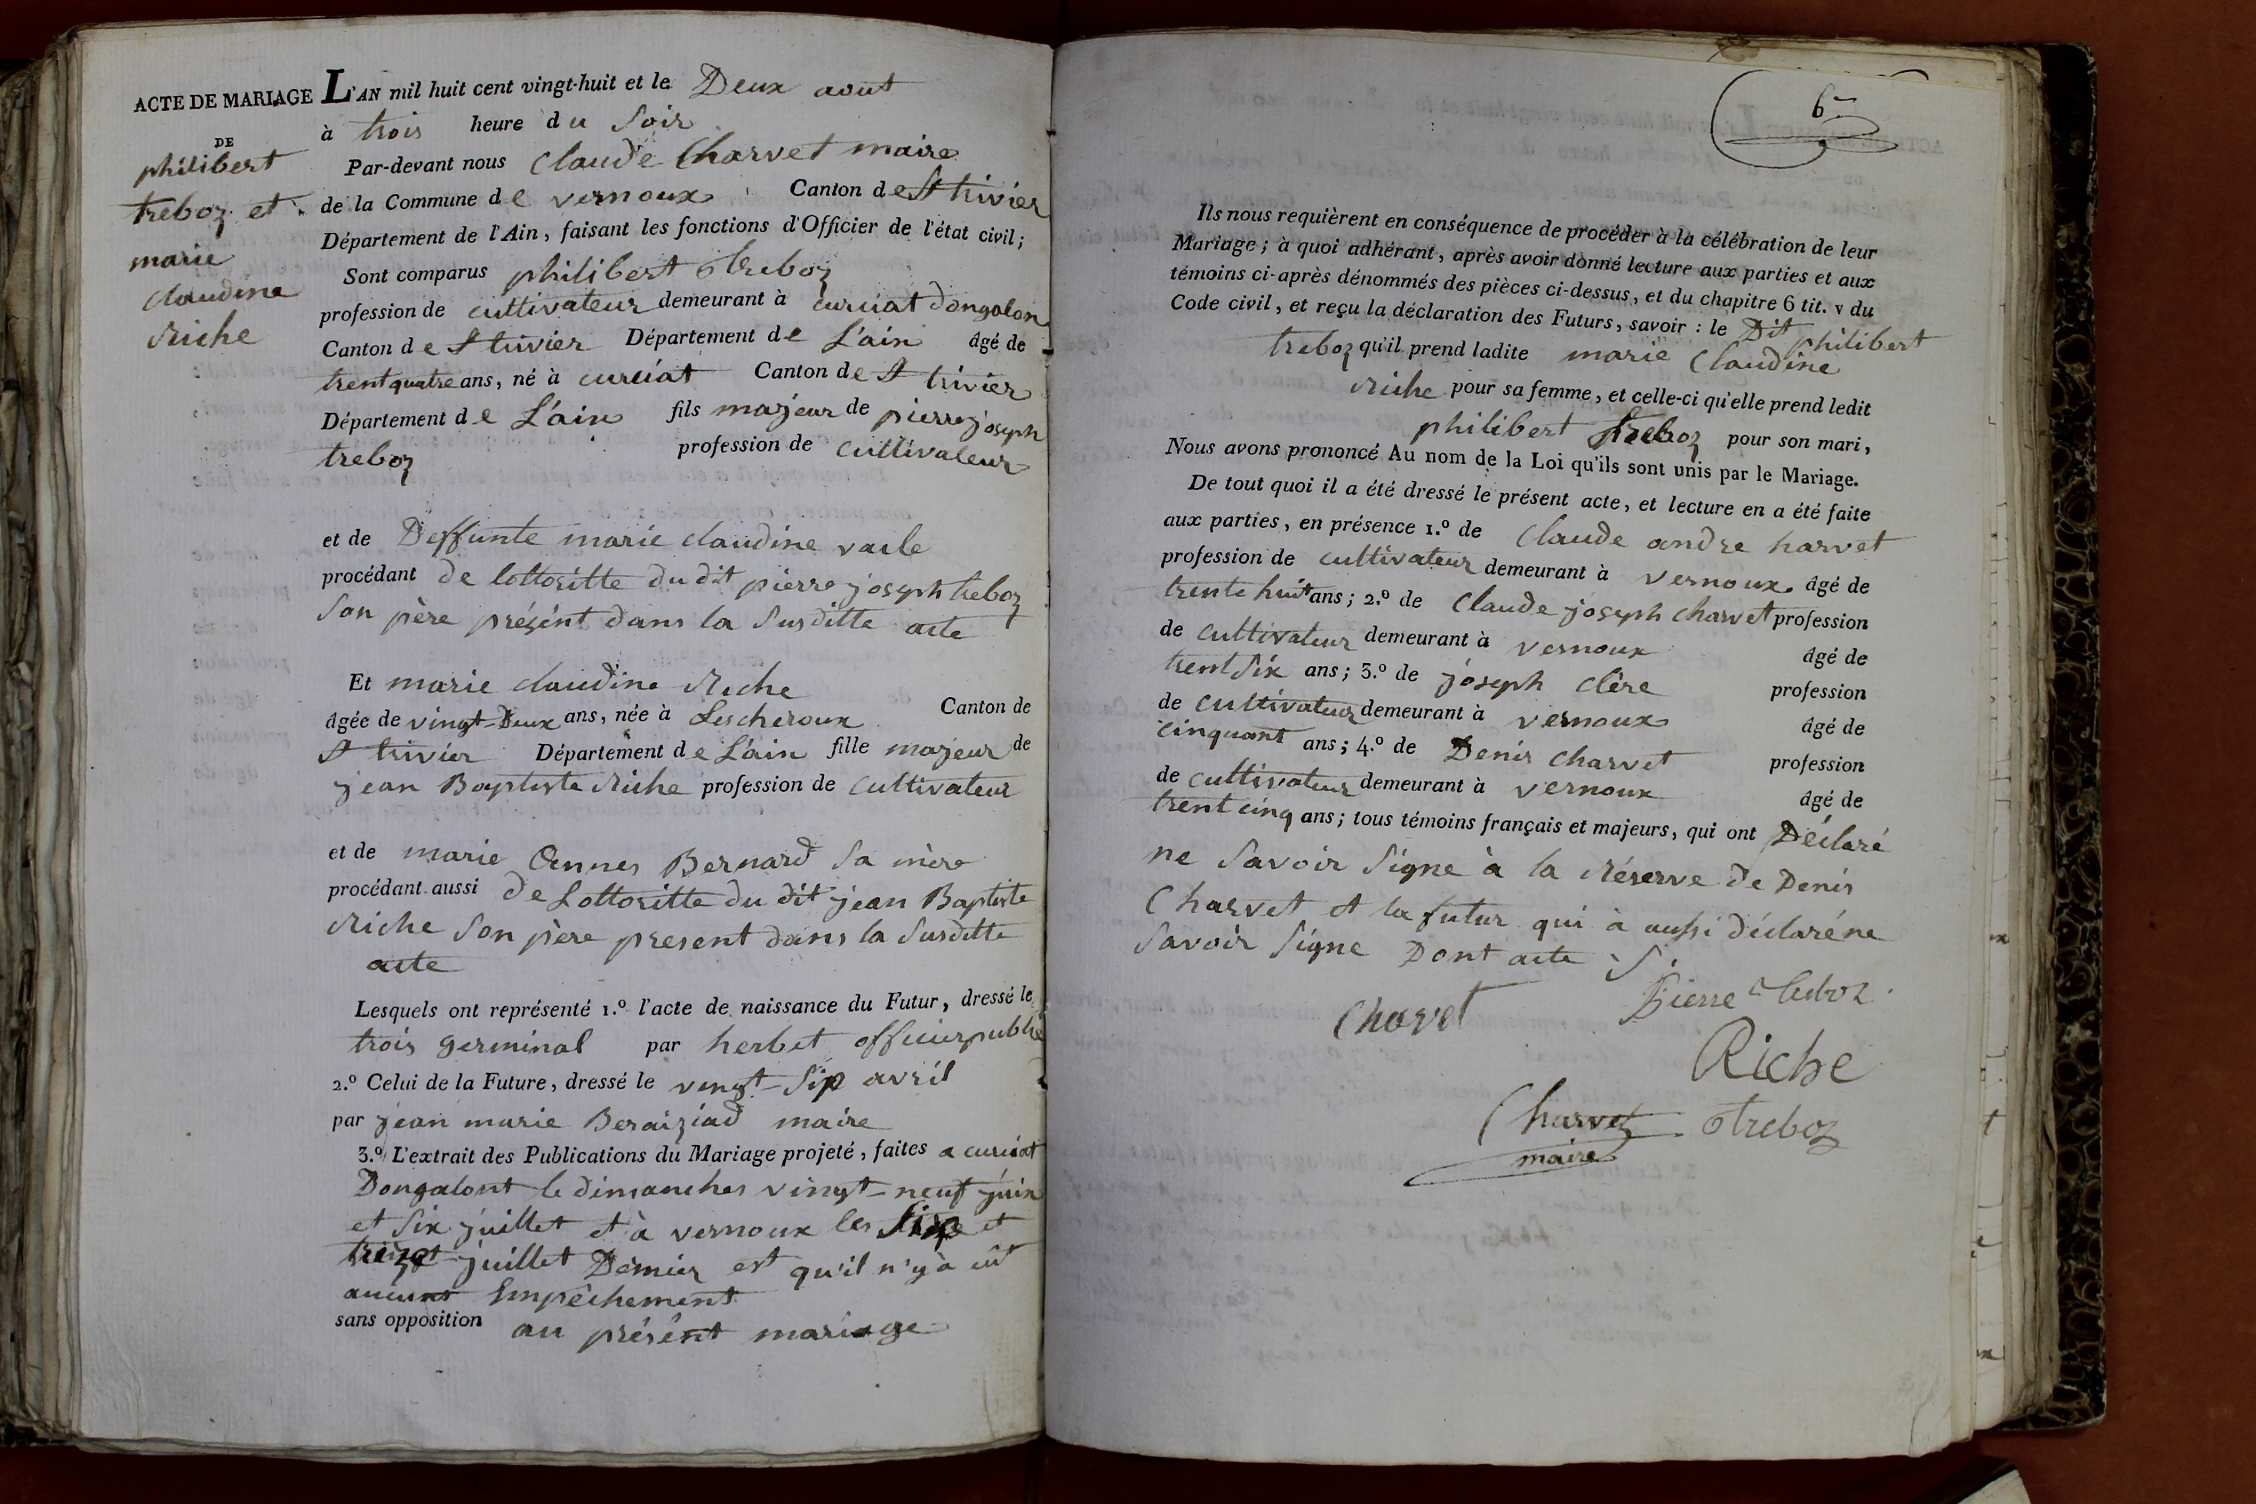 ACTE DE MARIAGE
DE
philibert
treboz et
marie
claudine
Riche
L'AN mil huit cent vingt-huit et le Deux aout
à trois heure du Soir
Par-devant nous Claude Charvet maire
de la Commune de vernoux Canton de St trivier
Département de l'Ain, faisant les fonctions d'Officier de l'état civil;
Sont comparus philibert treboz
profession de cultivateur demeurant à curciat dongalon
Canton de St trivier Département de L'ain âgé de
trent quatre ans, né à curciat Canton de St trivier
Département de L'ain fils majeur de pierre joseph
treboz profession de cultivateur
et de Deffunte marie claudine
procédant de lottoritte du dit pierre joseph treboz
Son père présént dans la Susditte acte
Et marie claudine Riche
âgée de vingt-Deux ans, née à Lescheroux Canton de
St trivier Département de L'ain fille majeur de
jean Baptiste Riche profession de cultivateur
et de marie Annes Bernard Sa mère
procédant aussi de Lottoritte du dit jean Baptiste
Riche Son père present dans la Susditte
acte
Lesquels ont représenté 1.º l'acte de naissance du Futur, dressé le
trois germinal par herbet officier public
2.º Celui de la Future, dressé le vingt-Sip avril
par jean marie Beraiziad maire
3.º L'extrait des Publications du Mariage projeté, faites a curciat
Dongalont le dimanches vingt-neuf juin
et Six juillet et à vernoux les Sip et
treize juillet Dernier est qu'il n'y à eût
aucunt Empêchement
sans opposition au présént mariage
6
Ils nous requièrent en conséquence de procéder à la célébration de leur
Mariage; à quoi adhérant, après avoir donné lecture aux parties et aux
témoins ci-après dénommés des pièces ci-dessus, et du chapitre 6 tit. v du
Code civil, et reçu la déclaration des Futurs, savoir : le Dit philibert
treboz qu'il prend ladite marie Claudine
Riche pour sa femme, et celle-ci qu'elle prend ledit
philibert treboz pour son mari,
Nous avons prononcé Au nom de la Loi qu'ils sont unis par le Mariage.
De tout quoi il a été dressé le présent acte, et lecture en a été faite
aux parties, en présence 1.º de Claude andre harvet
profession de cultivateur demeurant à vernoux âgé de
trente huit ans; 2.º de Claude joseph charvet profession
de cultivateur demeurant à vernoux âgé de
trent Six ans; 3.º de joseph clère profession
de cultivateur demeurant à vernoux âgé de
cinquant ans; 4.º de Denis charvet profession
de cultivateur demeurant à vernoux âgé de
trent cinq ans; tous témoins français et majeurs, qui ont Déclaré
ne Savoir Signe à la réserve de Denis
Charvet et la futur qui à aussi déclaré ne
Savoir Signe Dont acte
Pierre treboz
Charvet
Riche
Charvet treboz
maire